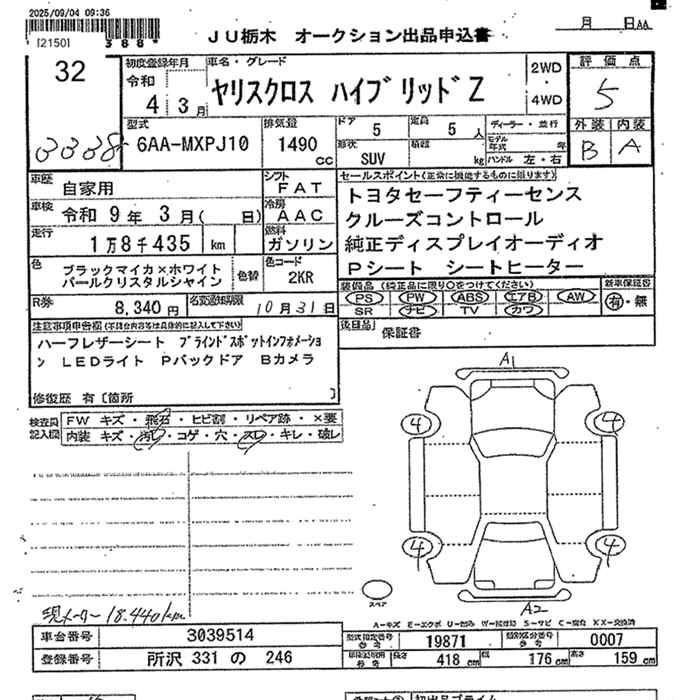 2025/09/04 09:36
[2150]
388*
JU栃木 オークション出品申込書
月 日AA
32
3038
初度登録年月
令和
4年3月
車名・グレード
ヤリスクロス ハイブリッドZ
2WD
・
4WD
評価点
5
外装 内装
B A
型式
6AA-MXPJ10
排気量
1490
cc
ドア
5
定員
5人
形状
SUV
積載
kg
ディーラー・並行
モデル年式 年
ハンドル 左・右
車歴
自家用
シフト
FAT
車検
令和 9年 3月( 日)
冷房
AAC
走行
1万8千435 km
燃料
ガソリン
色
ブラックマイカ×ホワイト
パールクリスタルシャイン
色替
色コード
2KR
R券
8,340円
名変通知期限
10月31日
セールスポイント(正常に機能するものに限ります)
トヨタセーフティーセンス
クルーズコントロール
純正ディスプレイオーディオ
Pシート シートヒーター
装備品 (純正品に限り○をつけてください)
PS PW ABS エアB AW
SR ナビ TV カワ
新車保証書
有・無
後日品
保証書
注意事項申告欄(不具合内容等は具体的に記入して下さい)
ハーフレザーシート ブラインドスポットインフォメーション
LEDライト Pバックドア Bカメラ
修復歴 有〔箇所 〕
検査員記入欄
FW キズ・飛石・ヒビ割・リペア跡・×要
内装 キズ・汚れ・コゲ・穴・スレ・キレ・破レ
A1
4 4
4 4
スペア
A2
現メーター 18.440km
A-キズ E-エクボ U-凹み W-補修跡 S-サビ C-腐食 XX-交換済
車台番号
3039514
登録番号
所沢 331 の 246
型式指定番号
参考
19871
類別区分番号
参考
0007
車検証記載
参考
長さ
418 cm
幅
176 cm
高さ
159 cm
初出品プライム